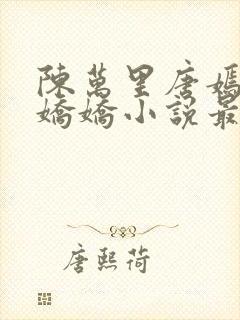 陳萬里唐嫣
嬌嬌小說最
唐熙荷